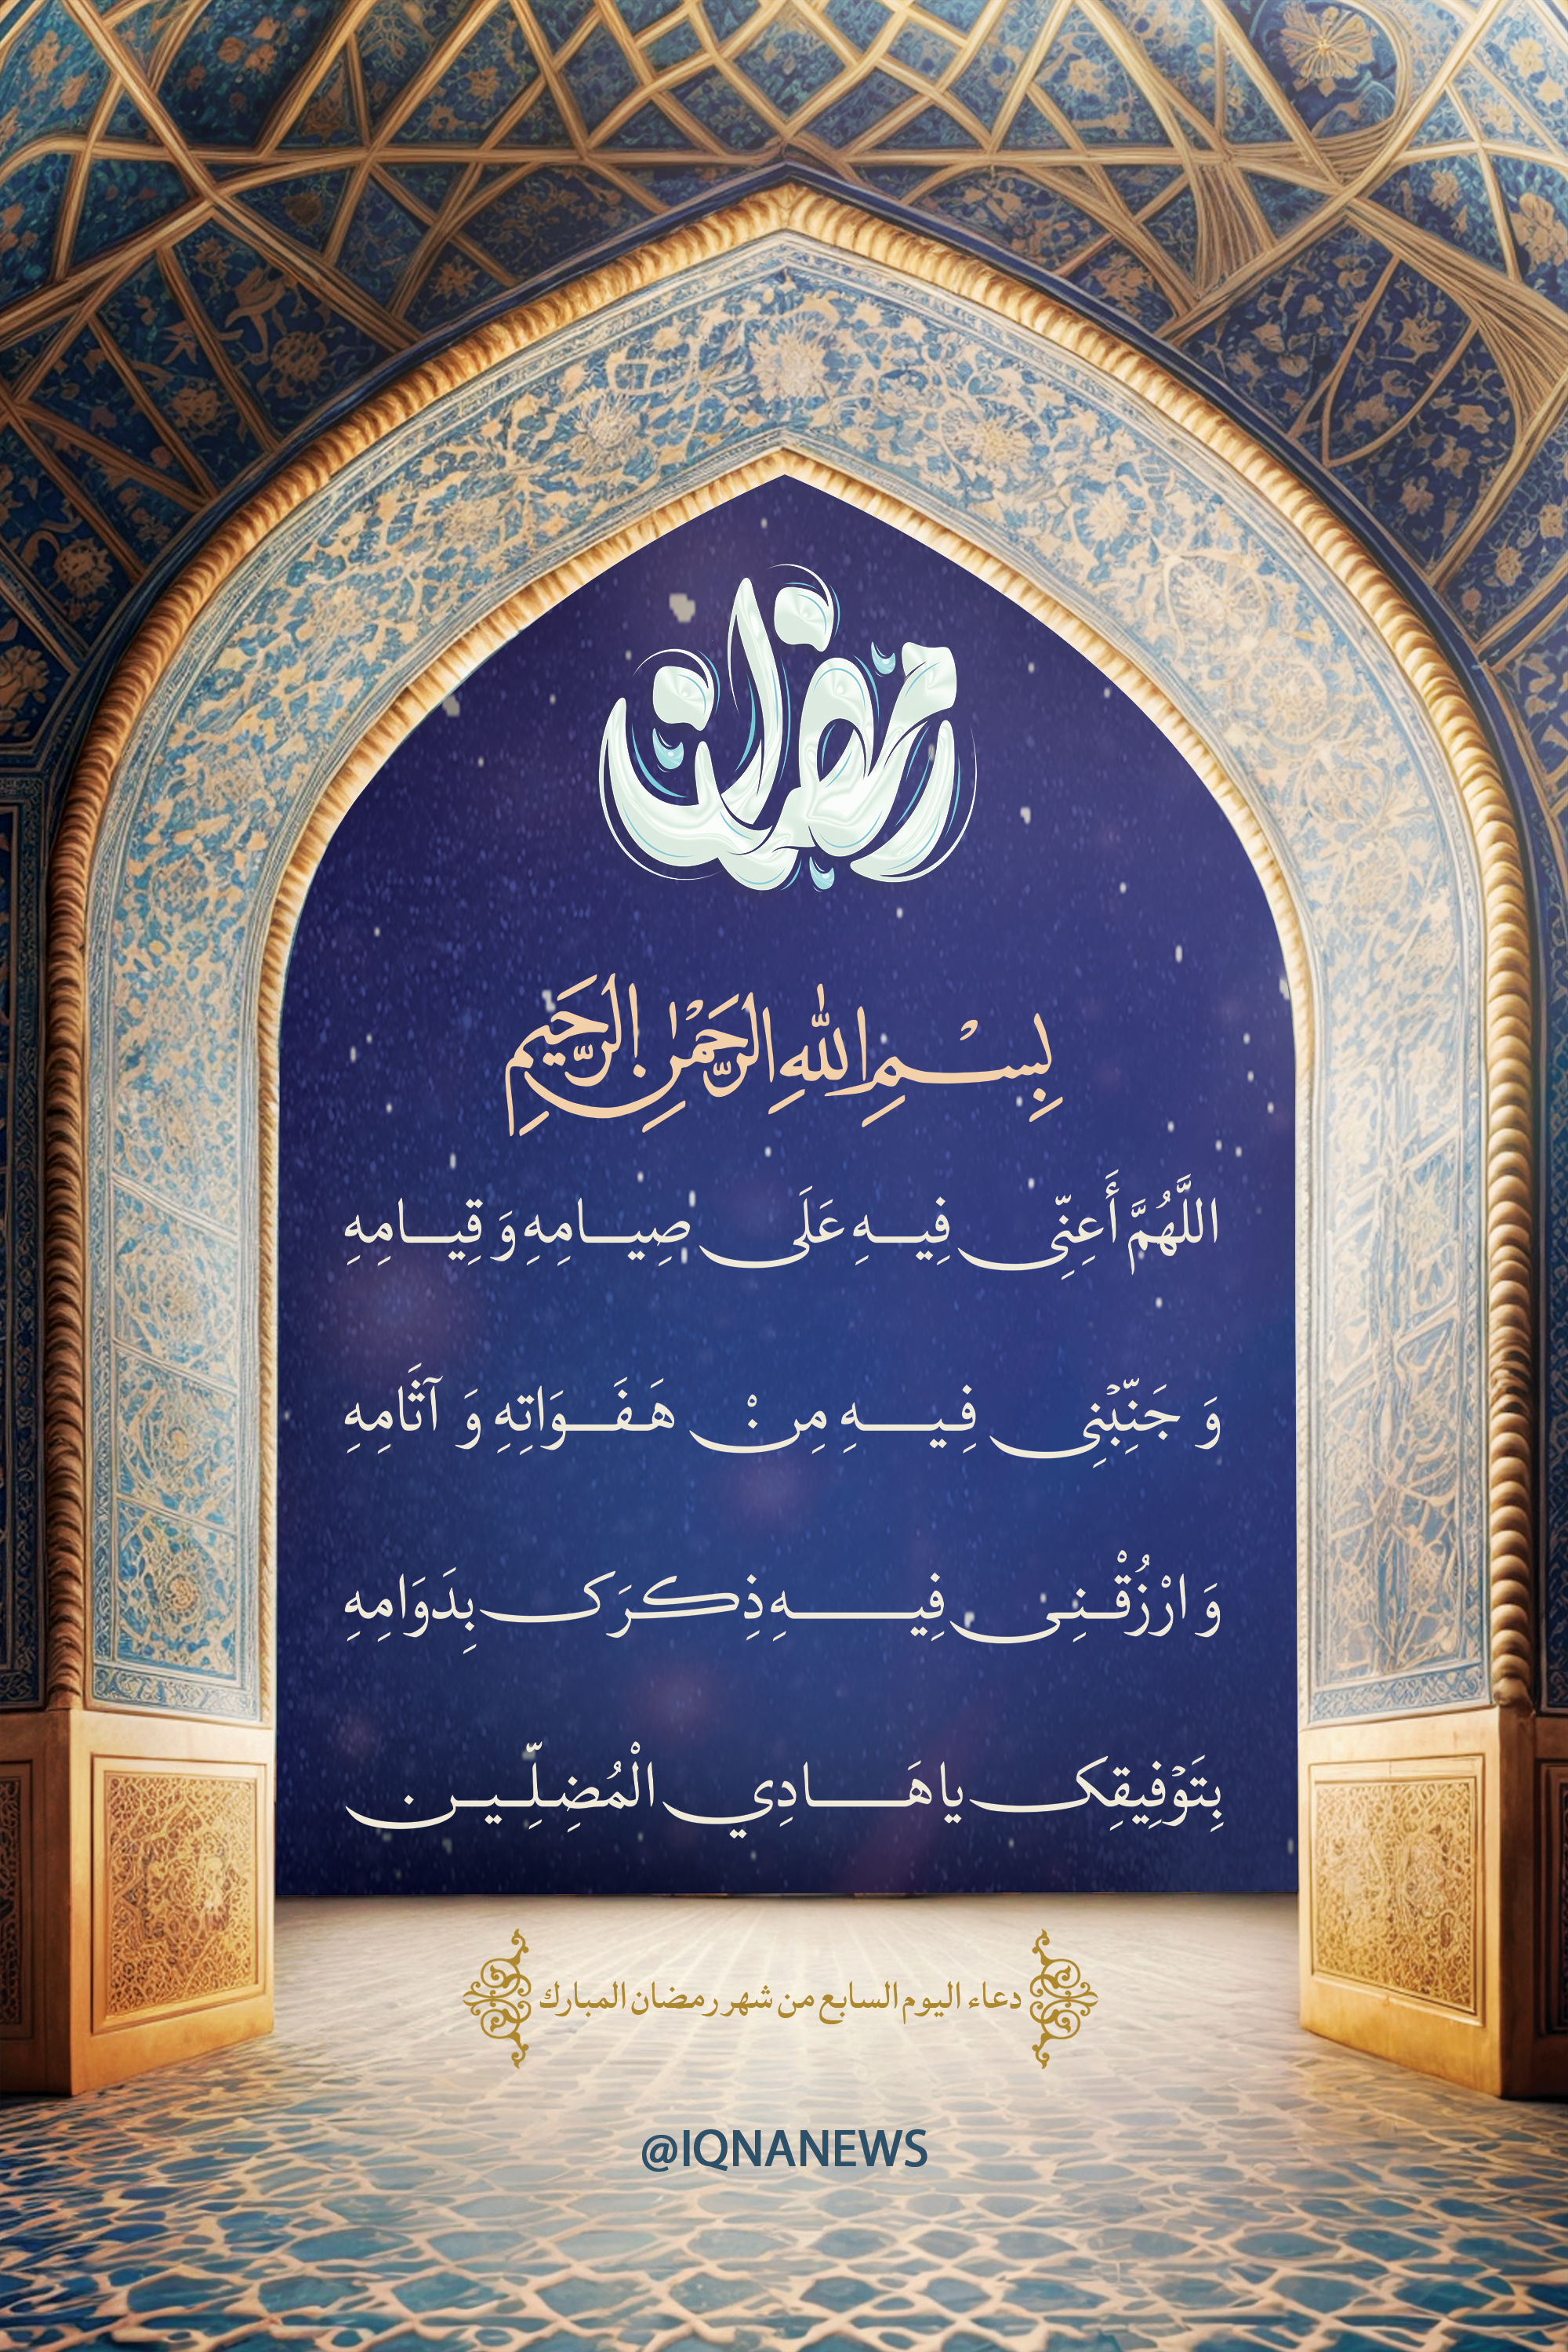 رمضان
بِسْمِ اللهِ الرَّحْمٰنِ الرَّحِيمِ
اللَّهُمَّ أَعِنِّي فِيهِ عَلَى صِيَامِهِ وَ قِيَامِهِ
وَ جَنِّبْنِي فِيهِ مِنْ هَفَوَاتِهِ وَ آثَامِهِ
وَ ارْزُقْنِي فِيهِ ذِكرَک بِدَوَامِهِ
بِتَوْفِيقِک يا هَادِي الْمُضِلِّين
دعاء اليوم السابع من شهر رمضان المبارك
@IQNANEWS